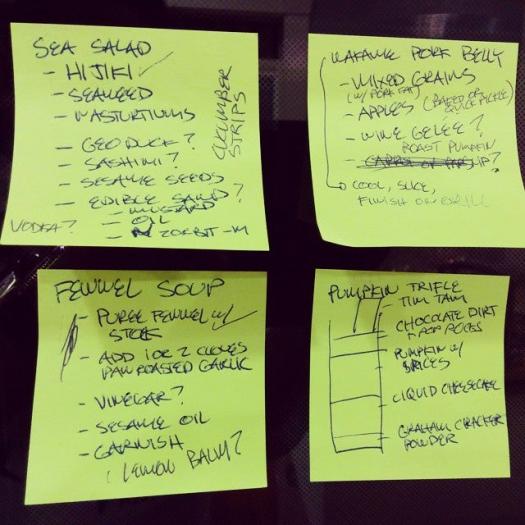 SEA SALAD
- HIJIKI ✓
- SEAWEED
- NASTURTIUMS
- GEODUCK?
- SASHIMI?
- SESAME SEEDS
- EDIBLE SAND?
- MUSTARD
- OIL
- N ZORBIT-M
VODKA?
CUCUMBER
STRIPS
WAKAME PORK BELLY
- MIXED GRAINS
(W/ PORK FAT)
- APPLES (BAKED OR
QUICK PICKLE)
- WINE GELÉE?
ROAST PUMPKIN
COOL, SLICE,
FINISH ON GRILL
FENNEL SOUP
- PUREE FENNEL W/
STOCK
- ADD 1 OR 2 CLOVES
PAN ROASTED GARLIC
- VINEGAR?
- SESAME OIL
- GARNISH
(LEMON BALM?
PUMPKIN TRIFLE
TIM TAM
CHOCOLATE DIRT
& POP ROCKS
PUMPKIN W/
SPICES
LIQUID CHEESECAKE
GRAHAM CRACKER
POWDER